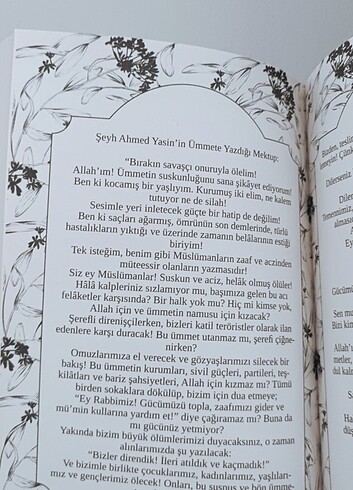 Şeyh Ahmed Yasin’in Ümmete Yazdığı Mektup:
“Bırakın savaşçı onuruyla ölelim!
Allah’ım! Ümmetin suskunluğunu sana şikâyet ediyorum!
Ben ki kocamış bir yaşlıyım. Kurumuş iki elim, ne kalem
tutuyor ne de silah!
Sesimle yeri inletecek güçte bir hatip de değilim!
Ben ki saçları ağarmış, ömrünün son demlerinde, türlü
hastalıkların yıktığı ve üzerinde zamanın belâlarının estiği
biriyim!
Tek isteğim, benim gibi Müslümanların zaaf ve aczinden
müteessir olanların yazmasıdır!
Siz ey Müslümanlar! Suskun ve aciz, helâk olmuş ölüler!
Hâlâ kalpleriniz sızlamıyor mu, başımıza gelen bu acı
felâketler karşısında? Bir halk yok mu? Hiç mi kimse yok,
Allah için ve ümmetin namusu için kızacak?
Şerefli direnişçilerken, bizleri katil teröristler olarak ilan
edenlere karşı duracak! Bu ümmet utanmaz mı, şerefi çiğne-
nirken?
Omuzlarımıza el verecek ve gözyaşlarımızı silecek bir
bakış! Bu ümmetin kurumları, sivil güçleri, partileri, teş-
kilâtları ve bariz şahsiyetleri, Allah için kızmaz mı? Tümü
birden sokaklara dökülüp, bizim için dua etmeye;
“Ey Rabbimiz! Gücümüzü topla, zaafımızı gider ve
mü’min kullarına yardım et!” diye çağıramaz mı? Buna da
mı gücünüz yetmiyor?
Yakında bizim büyük ölümlerimizi duyacaksınız, o zaman
alınlarımızda şu yazılacak:
“Bizler direndik! İleri atıldık ve kaçmadık!”
Ve bizimle birlikte çocuklarımız, kadınlarımız, yaşlıları-
mız ve gençlerimiz ölecek! Onları, bu suspus ve bön ümme-
Dilersen
Dile
Gücümü